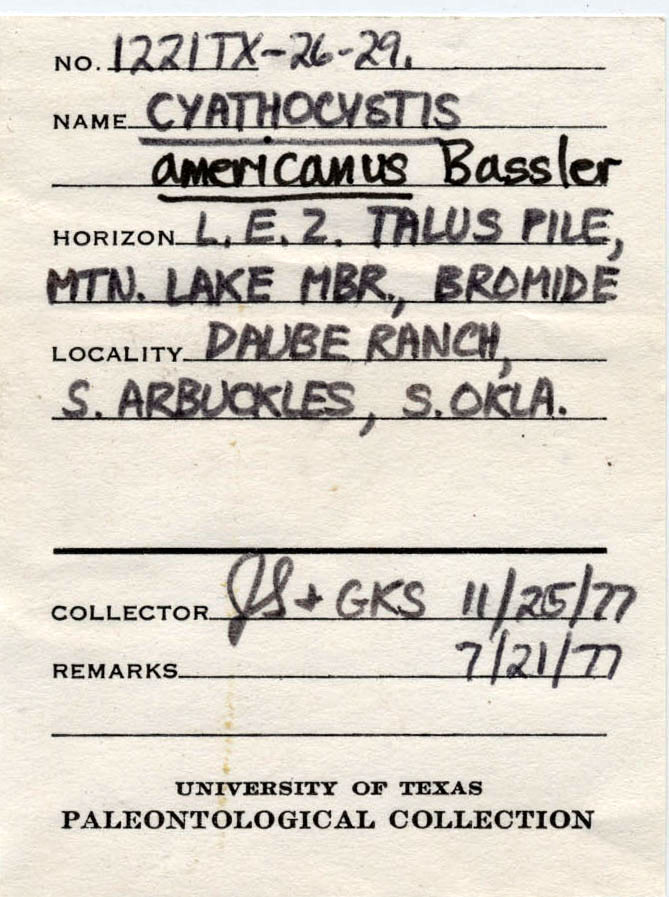 NO. 1221TX-26-29.
NAME CYATHOCYSTIS
americanus Bassler
HORIZON L. E. Z. TALUS PILE,
MTN. LAKE MBR., BROMIDE
LOCALITY DAUBE RANCH,
S. ARBUCKLES, S. OKLA.
COLLECTOR JS + GKS 11/25/77
REMARKS 7/21/77
UNIVERSITY OF TEXAS
PALEONTOLOGICAL COLLECTION